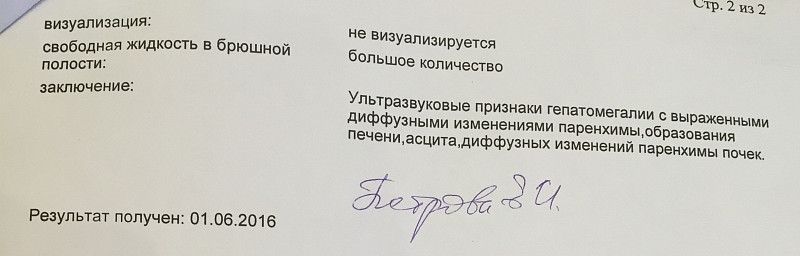 Стр. 2 из 2
визуализация:
не визуализируется
свободная жидкость в брюшной
полости:
большое количество
заключение:
Ультразвуковые признаки гепатомегалии с выраженными
диффузными изменениями паренхимы,образования
печени,асцита,диффузных изменений паренхимы почек.
Петрова
Результат получен: 01.06.2016